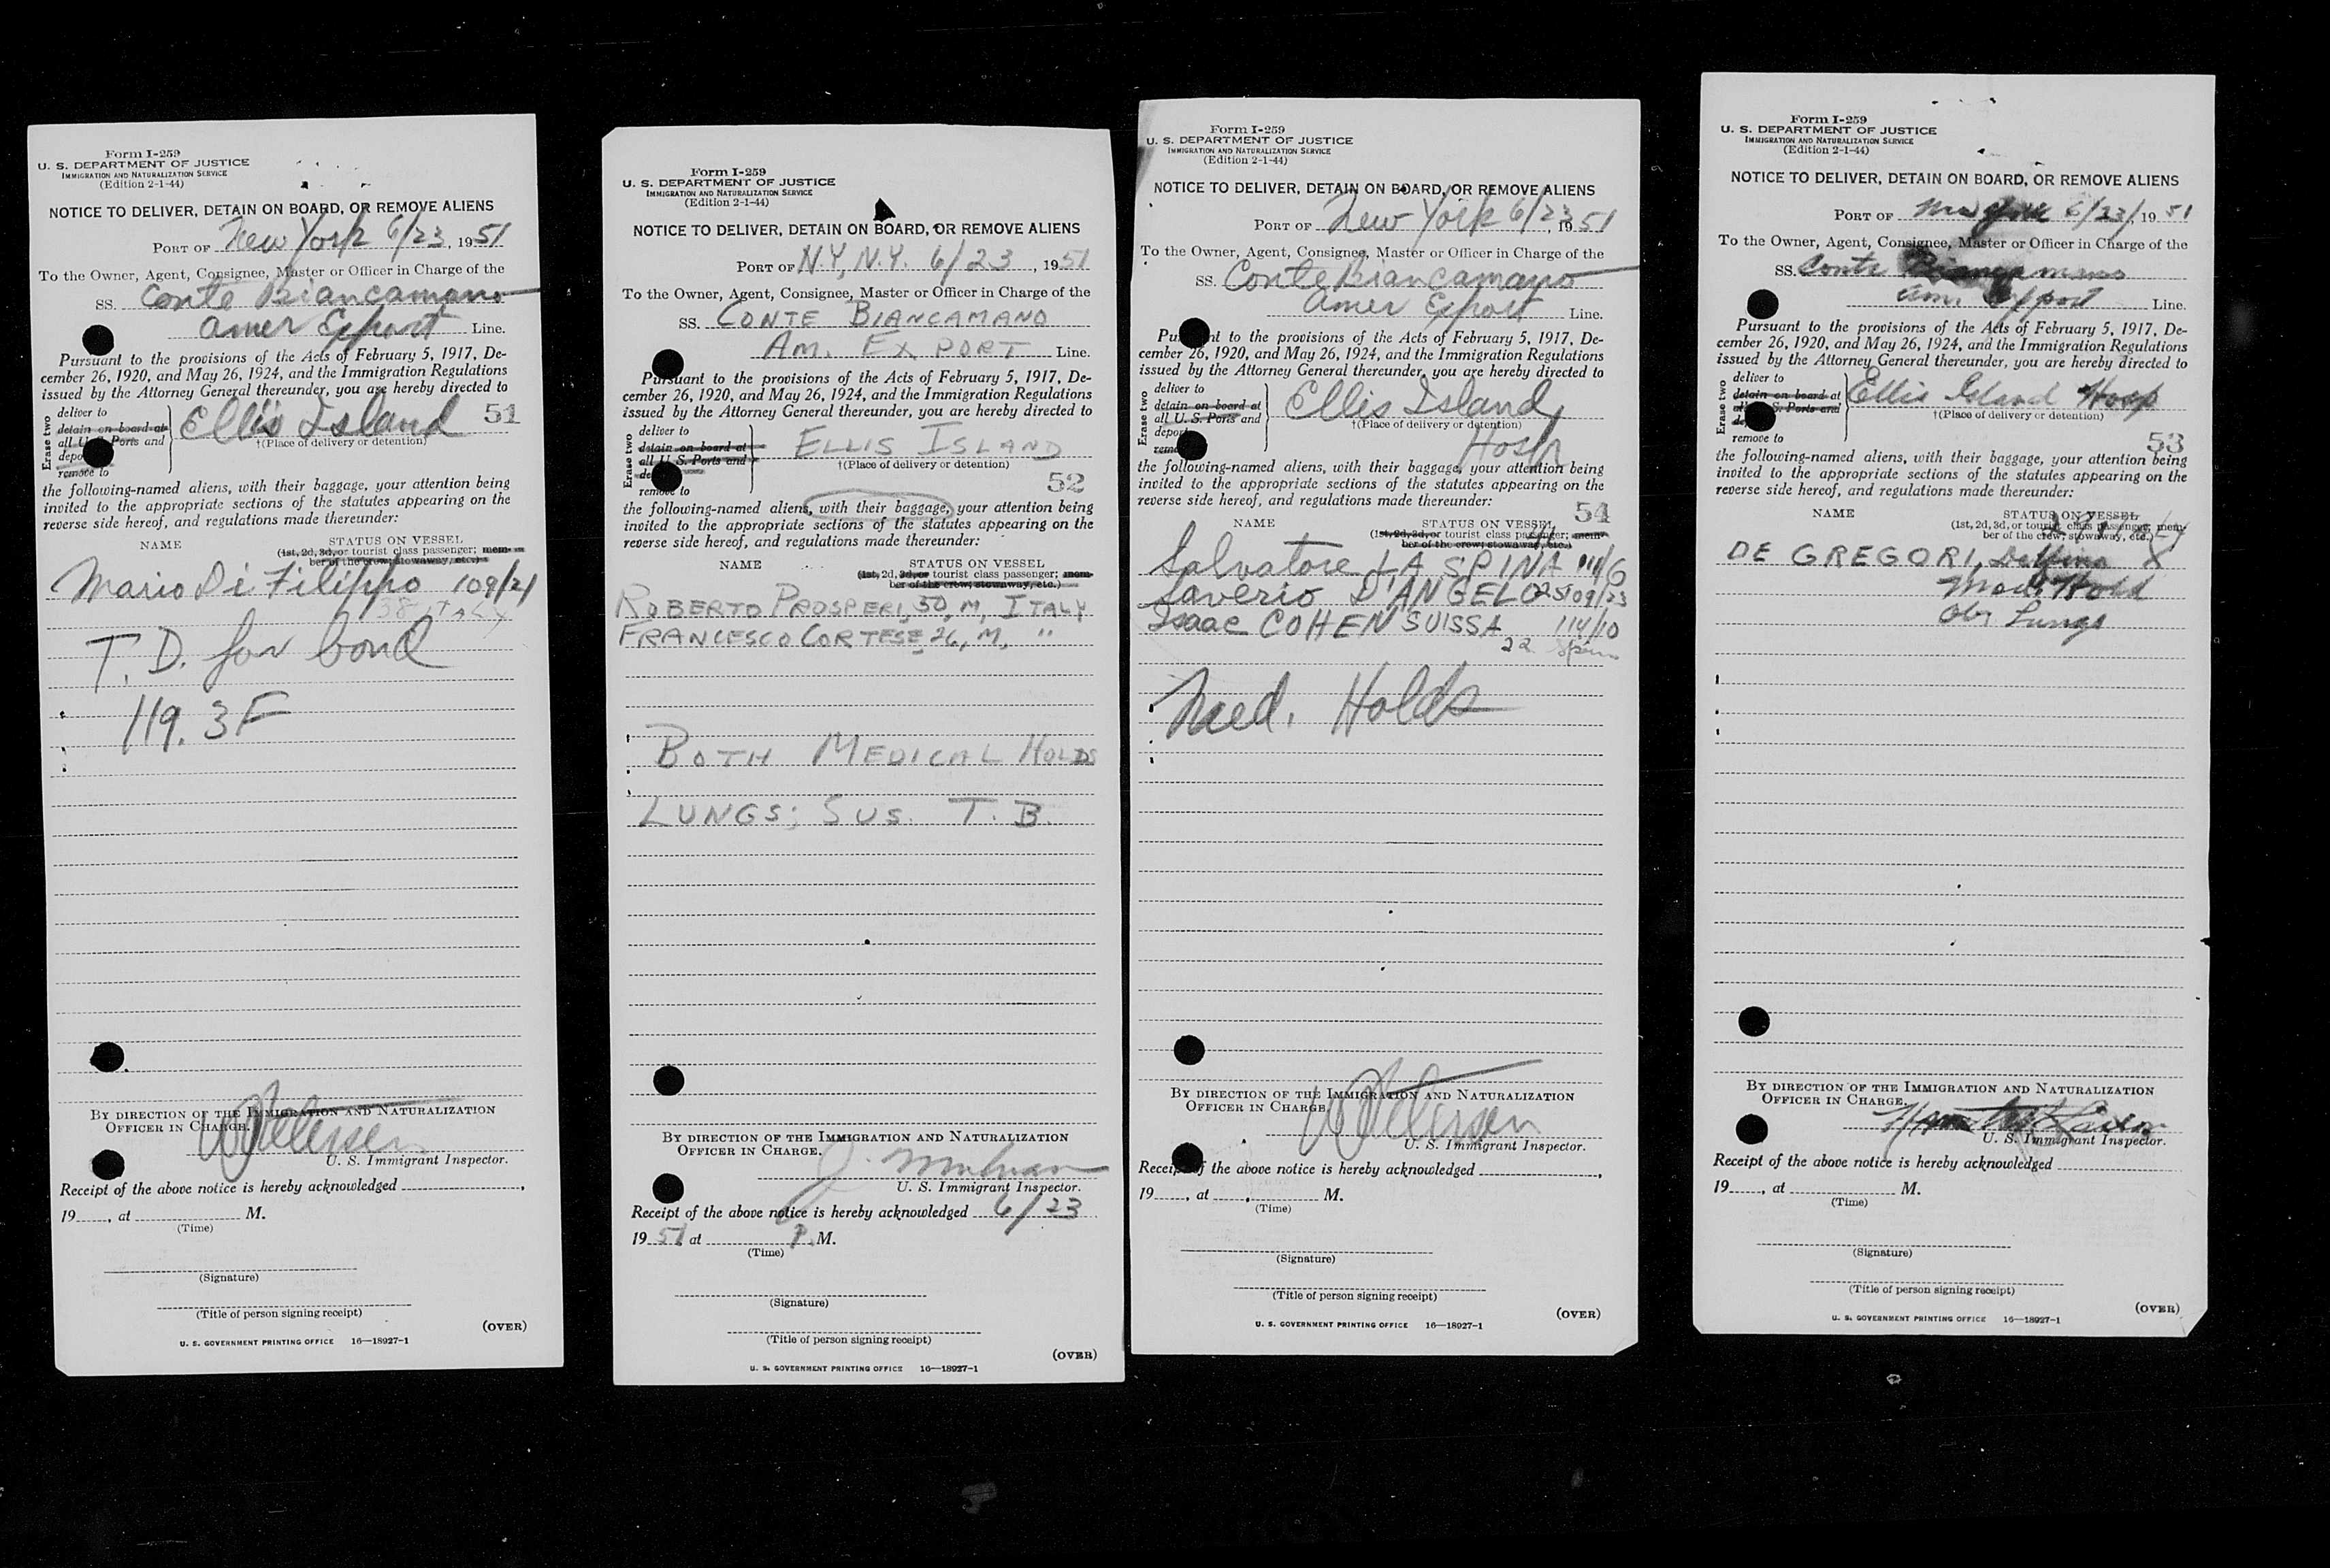 Form I-259
U. S. DEPARTMENT OF JUSTICE
IMMIGRATION AND NATURALIZATION SERVICE
(Edition 2-1-44)
NOTICE TO DELIVER, DETAIN ON BOARD, OR REMOVE ALIENS
PORT OF New York 6/23, 1951
To the Owner, Agent, Consignee, Master or Officer in Charge of the
SS. Conte Biancamano
Amer Export Line.
Pursuant to the provisions of the Acts of February 5, 1917, De-
cember 26, 1920, and May 26, 1924, and the Immigration Regulations
issued by the Attorney General thereunder, you are hereby directed to
Erase two
deliver to
detain on board at
all U. S. Ports and
depo
remove to
Ellis Island 51
†(Place of delivery or detention)
the following-named aliens, with their baggage, your attention being
invited to the appropriate sections of the statutes appearing on the
reverse side hereof, and regulations made thereunder:
NAME STATUS ON VESSEL
(1st, 2d, 3d, or tourist class passenger; mem-
ber of the crew; stowaway, etc.)
Mario Di Filippo 109/21
38 ITALY
T.D. for bond
119.3F
BY DIRECTION OF THE IMMIGRATION AND NATURALIZATION
OFFICER IN CHARGE.
W Petersen
U. S. Immigrant Inspector.
Receipt of the above notice is hereby acknowledged ,
19 , at M.
(Time)
(Signature)
(Title of person signing receipt)
(OVER)
U. S. GOVERNMENT PRINTING OFFICE 16—18927-1
Form I-259
U. S. DEPARTMENT OF JUSTICE
IMMIGRATION AND NATURALIZATION SERVICE
(Edition 2-1-44)
NOTICE TO DELIVER, DETAIN ON BOARD, OR REMOVE ALIENS
PORT OF N.Y, N.Y. 6/23, 1951
To the Owner, Agent, Consignee, Master or Officer in Charge of the
SS. CONTE BIANCAMANO
AM. EXPORT Line.
Pursuant to the provisions of the Acts of February 5, 1917, De-
cember 26, 1920, and May 26, 1924, and the Immigration Regulations
issued by the Attorney General thereunder, you are hereby directed to
Erase two
deliver to
detain on board at
all U. S. Ports and
de
remove to
ELLIS ISLAND
†(Place of delivery or detention)
52
the following-named aliens, with their baggage, your attention being
invited to the appropriate sections of the statutes appearing on the
reverse side hereof, and regulations made thereunder:
NAME STATUS ON VESSEL
(1st, 2d, 3d, or tourist class passenger; mem-
ber of the crew; stowaway, etc.)
ROBERTO PROSPERI, 50, M, ITALY
FRANCESCO CORTESE, 26, M, "
BOTH MEDICAL HOLDS
LUNGS; SUS. T.B.
BY DIRECTION OF THE IMMIGRATION AND NATURALIZATION
OFFICER IN CHARGE.
U. S. Immigrant Inspector.
Receipt of the above notice is hereby acknowledged 6/23
19 51 at P. M.
(Time)
(Signature)
(Title of person signing receipt)
(OVER)
U. S. GOVERNMENT PRINTING OFFICE 16—18927-1
Form I-259
U. S. DEPARTMENT OF JUSTICE
IMMIGRATION AND NATURALIZATION SERVICE
(Edition 2-1-44)
NOTICE TO DELIVER, DETAIN ON BOARD, OR REMOVE ALIENS
PORT OF New York 6/23, 1951
To the Owner, Agent, Consignee, Master or Officer in Charge of the
SS. Conte Biancamano
Amer Export Line.
Pu nt to the provisions of the Acts of February 5, 1917, De-
cember 26, 1920, and May 26, 1924, and the Immigration Regulations
issued by the Attorney General thereunder, you are hereby directed to
Erase two
deliver to
detain on board at
all U. S. Ports and
depor
remo
Ellis Island
†(Place of delivery or detention)
Hosp
the following-named aliens, with their baggage, your attention being
invited to the appropriate sections of the statutes appearing on the
reverse side hereof, and regulations made thereunder:
54
NAME STATUS ON VESSEL
(1st, 2d, 3d, or tourist class passenger; mem-
ber of the crew; stowaway, etc.)
Salvatore LA SPINA 111/6
Saverio D'ANGELO 25 109/23
Isaac COHEN SUISSA 114/10
22 Spain
Med. Holds
BY DIRECTION OF THE IMMIGRATION AND NATURALIZATION
OFFICER IN CHARGE
W Petersen
U. S. Immigrant Inspector.
Receipt of the above notice is hereby acknowledged ,
19 , at , M.
(Time)
(Signature)
(Title of person signing receipt)
(OVER)
U. S. GOVERNMENT PRINTING OFFICE 16—18927-1
Form I-259
U. S. DEPARTMENT OF JUSTICE
IMMIGRATION AND NATURALIZATION SERVICE
(Edition 2-1-44)
NOTICE TO DELIVER, DETAIN ON BOARD, OR REMOVE ALIENS
PORT OF New York 6/23/, 1951
To the Owner, Agent, Consignee, Master or Officer in Charge of the
SS. Conte Biancamano
Am. Export Line.
Pursuant to the provisions of the Acts of February 5, 1917, De-
cember 26, 1920, and May 26, 1924, and the Immigration Regulations
issued by the Attorney General thereunder, you are hereby directed to
Erase two
deliver to
detain on board at
all U. S. Ports and
de
remove to
Ellis Island Hosp
†(Place of delivery or detention)
53
the following-named aliens, with their baggage, your attention being
invited to the appropriate sections of the statutes appearing on the
reverse side hereof, and regulations made thereunder:
NAME STATUS ON VESSEL
(1st, 2d, 3d, or tourist class passenger; mem-
ber of the crew; stowaway, etc.)
DE GREGORI, Delfino
Med. Hold
Obs Lungs
BY DIRECTION OF THE IMMIGRATION AND NATURALIZATION
OFFICER IN CHARGE.
U. S. Immigrant Inspector.
Receipt of the above notice is hereby acknowledged
19 , at M.
(Time)
(Signature)
(Title of person signing receipt)
(OVER)
U. S. GOVERNMENT PRINTING OFFICE 16—18927-1